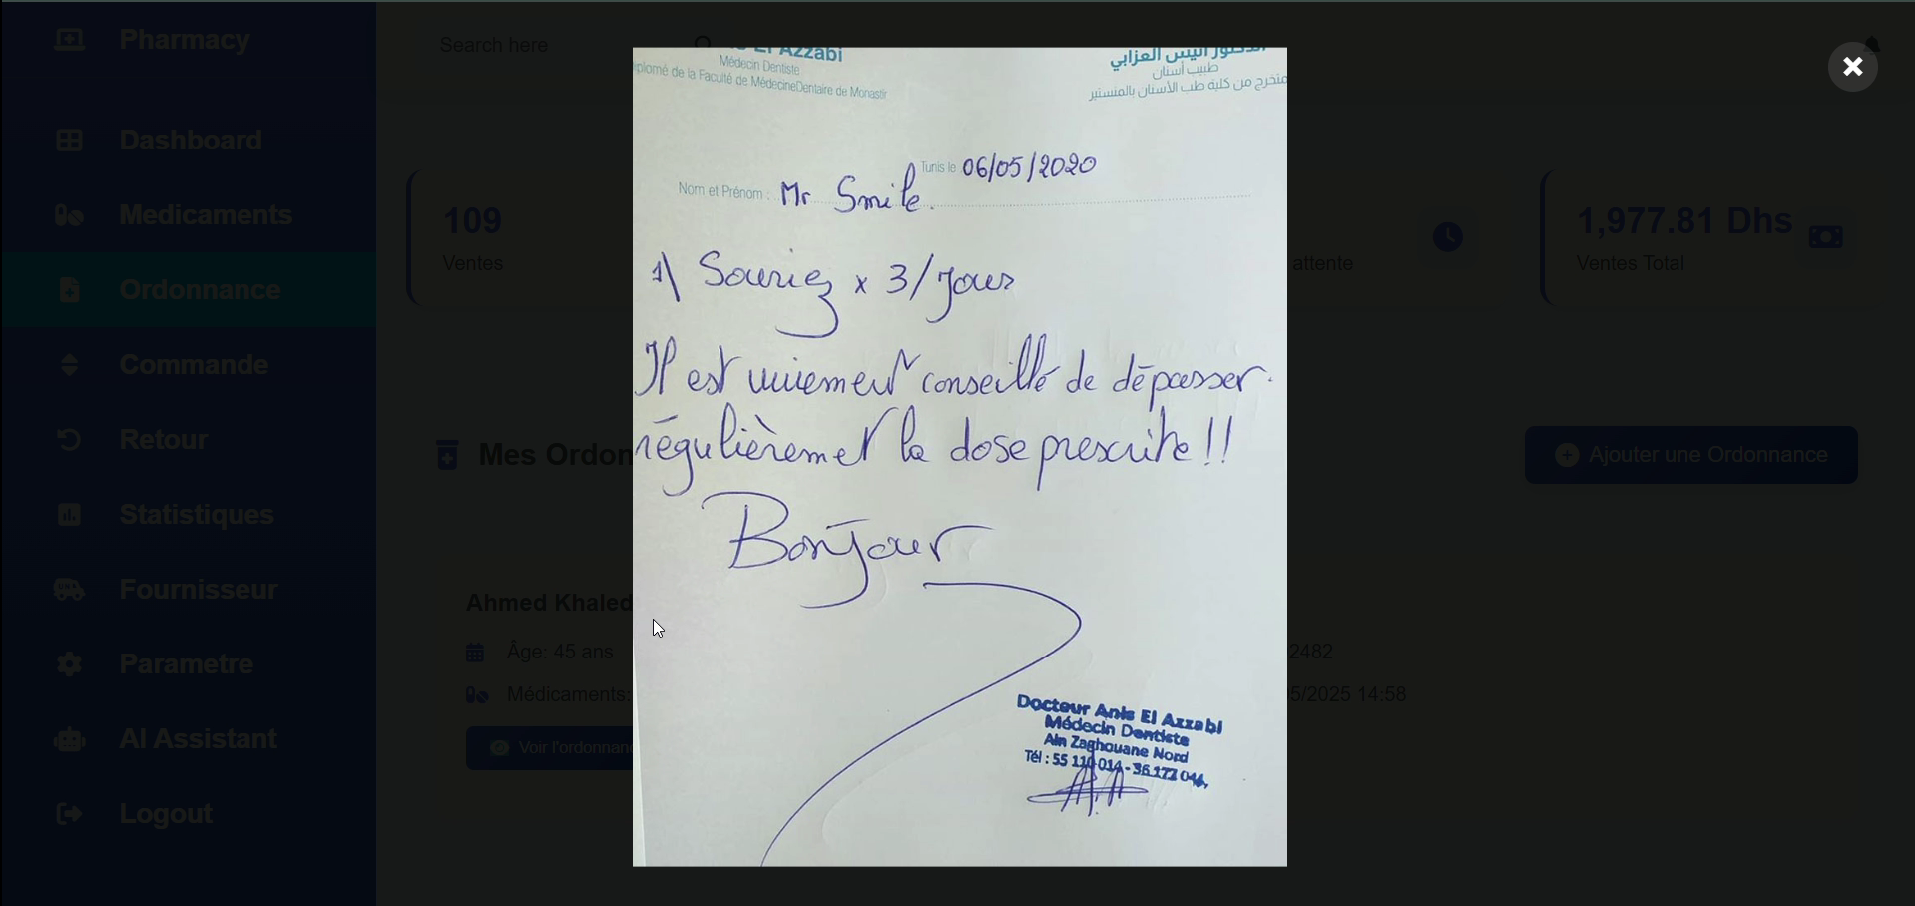 Pharmacy
Search here
Dashboard
Medicaments
Ordonnance
Commande
Retour
Statistiques
Fournisseur
Parametre
AI Assistant
Logout
109
Ventes
attente
1,977.81 Dhs
Ventes Total
Mes Ordon
Ajouter une Ordonnance
Ahmed Khaled
Âge: 45 ans
2482
Médicaments:
5/2025 14:58
Voir l'ordonnan
El Azzabi
Médecin Dentiste
plomé de la Faculté de MédecineDentaire de Monastir
الدكتور أنيس العزابي
طبيب أسنان
متخرج من كلية طب الأسنان بالمنستير
Tunis le 06/05/2020
Nom et Prénom : Mr Smile.
1\ Souriez x 3/Jour
Il est vivement conseillé de dépasser
régulièremet la dose prescrite!!
Bonjour
Docteur Anis El Azzabi
Médecin Dentiste
Ain Zaghouane Nord
Tél : 55 110 014 - 36 177 044